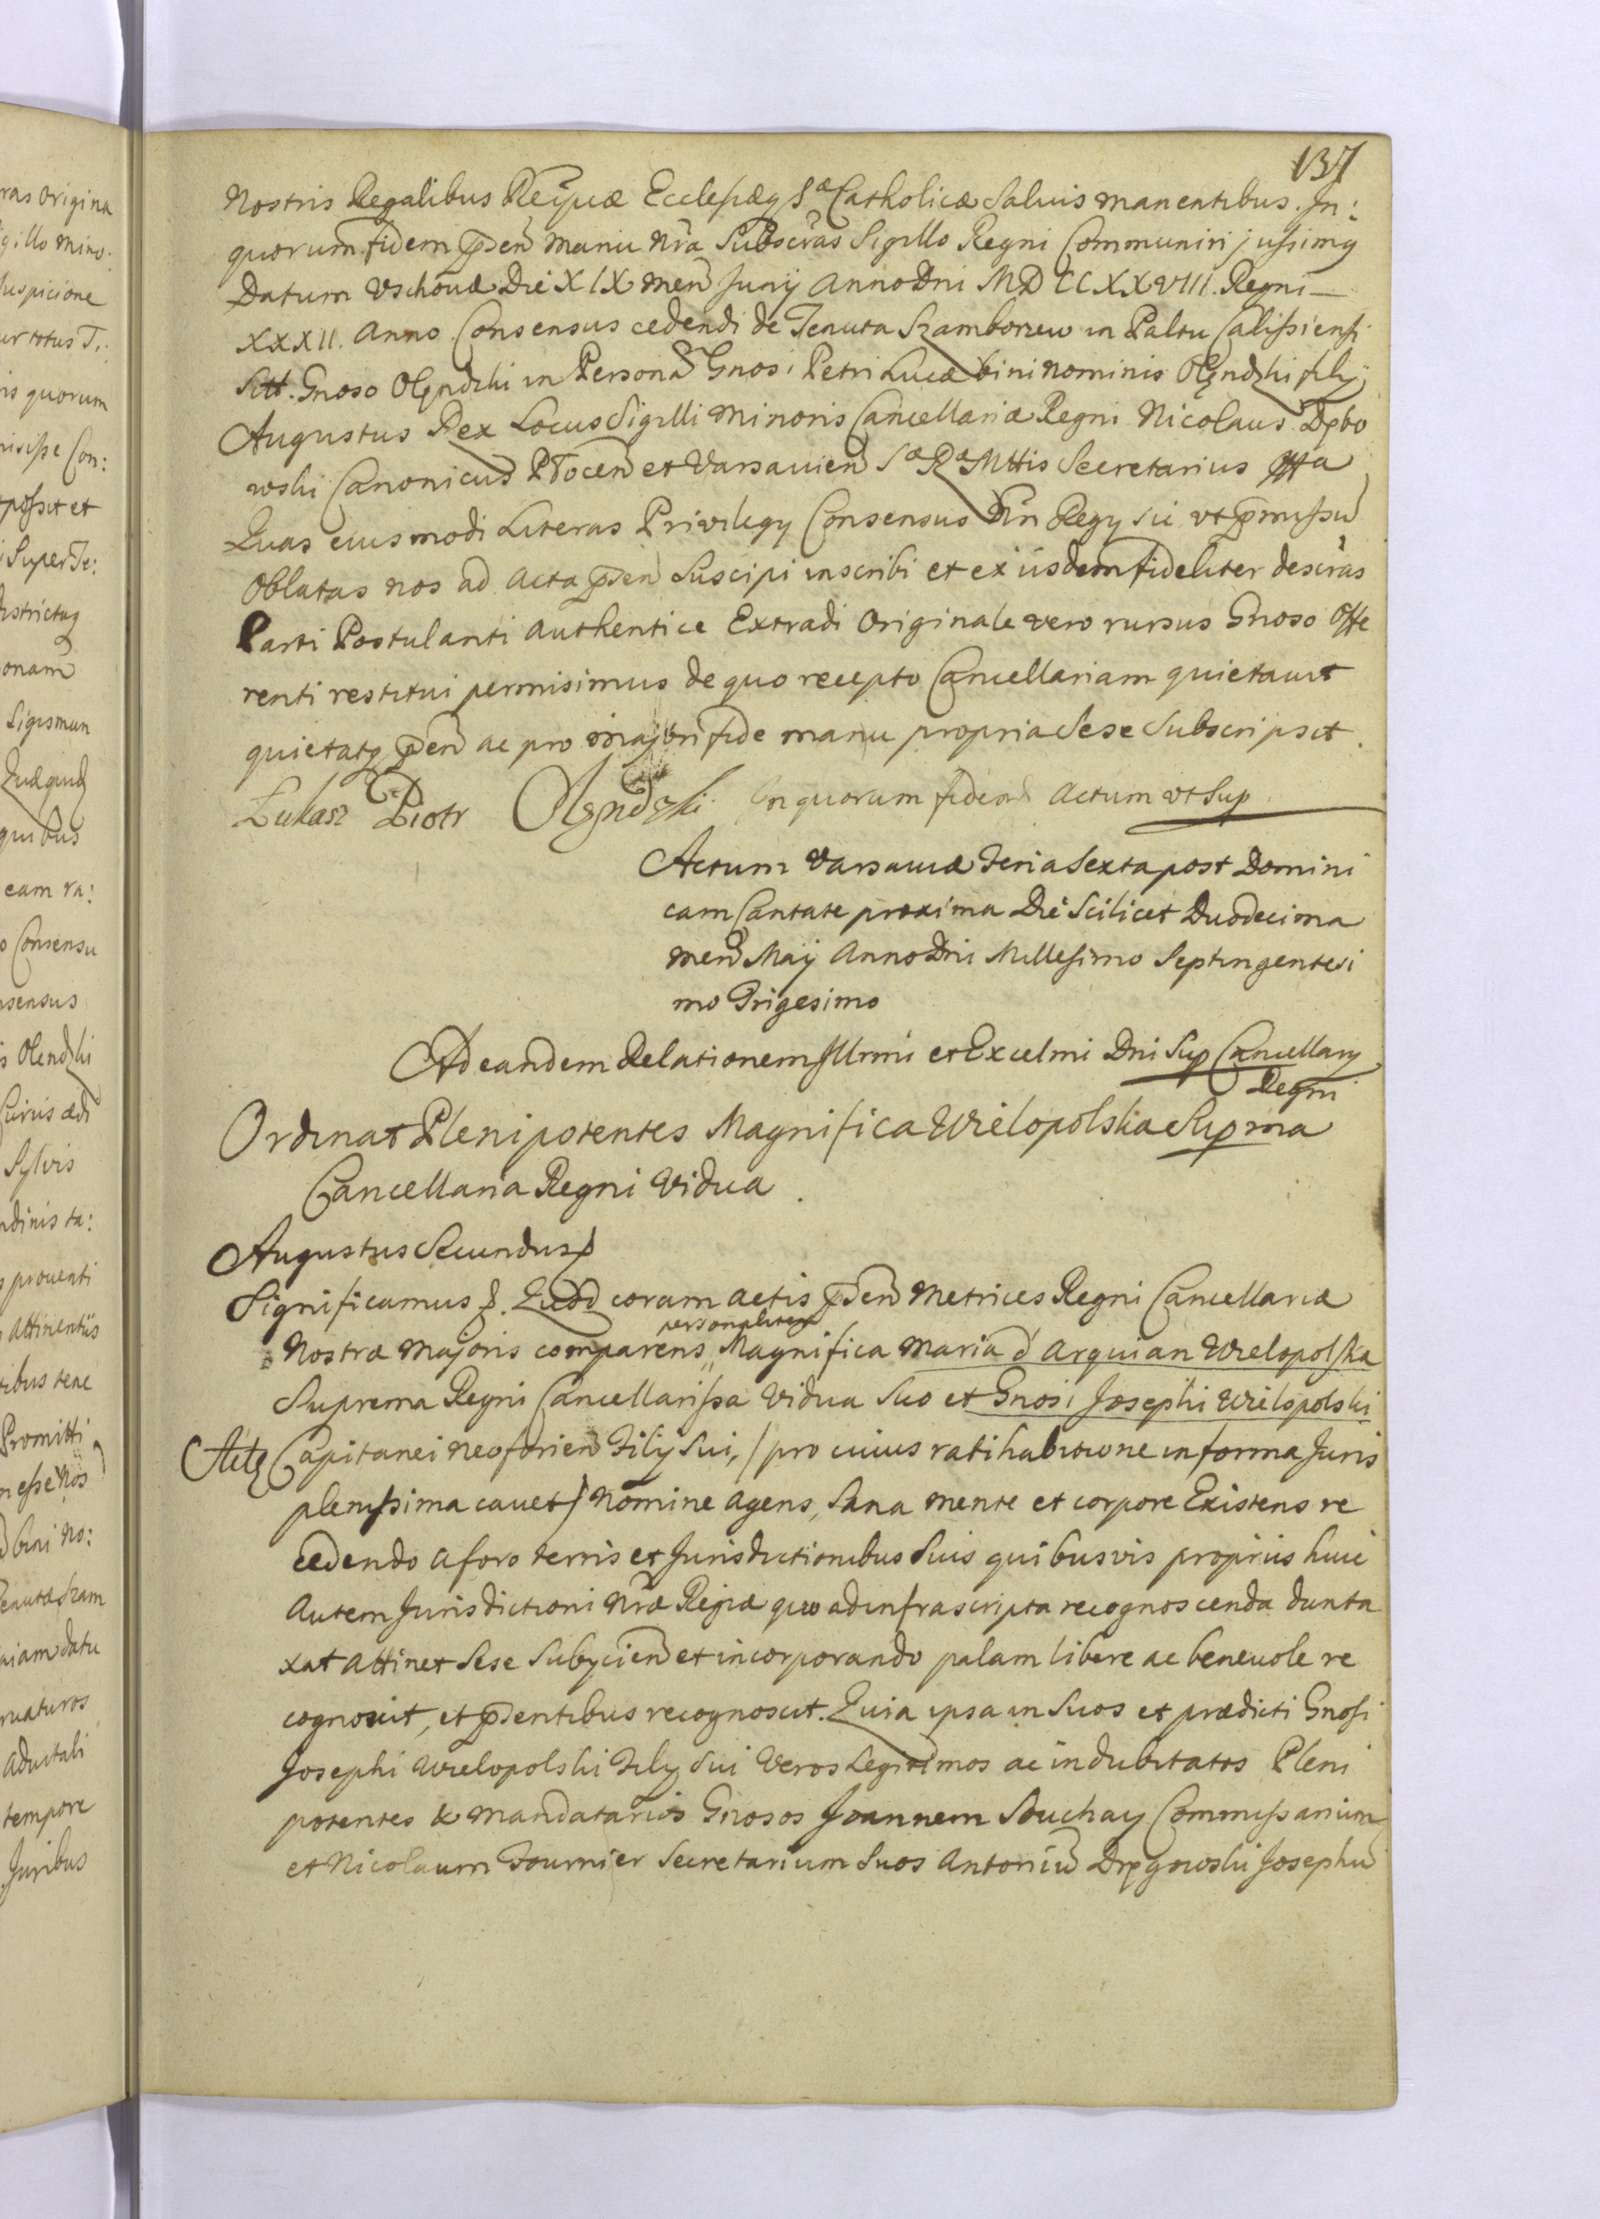 137
Nostris Regalibus Reipucæ Ecclesiæq Sæ Catholicæ Salvis manentibus. In:
quorum fidem pñsen manu nrã Subscrãs Sigillo Regni Communiri jussimq
Datum Vschovæ Die XIX men Junÿ Anno Dni MDCCXXVIII. Regni
XXXII. Anno Consensus cedendi de Tenuta Szamborzew in Paltu Calissiensi
Sitt. Gnoso Olęndzki in Persona Gnosi Petri Lucæ bini nominis Olęndzki filÿ
Augustus Rex Locus Sigilli minoris Cancellariæ Regni Nicolaus Dębo
wski Canonicus Plocen et Varsavien Sæ Ræ Mttis Secretarius
Quas eiusmodi Literas Privilegÿ Consensus Regÿ sic vt pmissũ
oblatas nos ad Acta pñsen Suscipi inscribi et ex iisdem fideliter descrãs
Parti Postulanti authentice Extradi Originale vero rursus Gnoso Offe
renti restitui permisimus de quo recepto Cancellariam quietavit
quietatq pñsen ac pro majori fide manu propria Sese Subscripsit.
Łukasz Piotr Olęndzki In quorum fidem Actum vt Sup
Actum Varsaviæ Feria Sexta post Domini
cam Cantate proxima Die Scilicet Duodecima
men Maÿ Anno Dni Millesimo Septingentesi
mo Trigesimo
Ad eandem Relationem Illrmi et Excelmi Dni Sup Cancellarÿ
Regni
Ordinat Plenipotentes Magnifica Wielopolska Suprma
Cancellaria Regni Vidua.
Augustus Secundus
Significamus &. Quod coram actis pñsen Metrices Regni Cancellariæ
personaliter
Nostræ majoris comparens Magnifica Maria d'Arquian Wielopolska
Suprema Regni Cancellarissa Vidua Suo et Gnosi Josephi Wielopolski
Capitanei neoforien Filÿ Sui, /pro cuius ratihabitione in forma Juris
plenissima cavet/ nomine agens, Sana mente et corpore Existens re
cedendo a foro terris et Jurisdictionibus Suis quibusvis propriis huic
autem Jurisdictioni Nræ Regiæ quo ad infrascripta recognoscenda dunta
xat attinet Sese Subÿcien et incorporando palam libere ac benevole re
cognovit, et pñsentibus recognoscit. Quia ipsa in Suos et prædicti Gnosi
Josephi Wielopolski Filÿ Sui Veros Legitimos ac indubitatos Pleni
potentes & mandatarios Gnosos Joannem Souchay Commissarium
et Nicolaum Fournier Secretarium Suos Antoniũ Dręgowski Josephũ